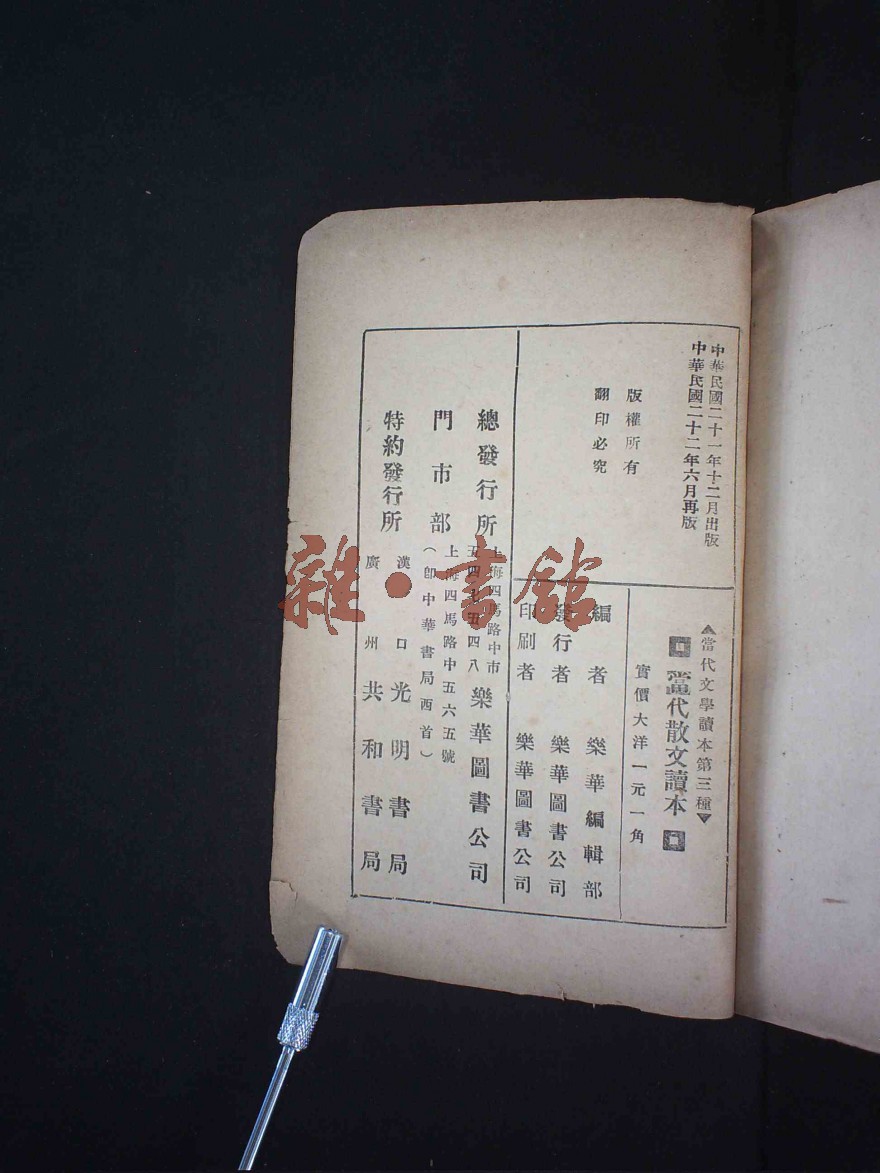 中華民國二十一年十二月出版
中華民國二十二年六月再版
版權所有
翻印必究
▲當代文學讀本第三種▼
當代散文讀本
實價大洋一元一角
編者 樂華編輯部
發行者 樂華圖書公司
印刷者 樂華圖書公司
總發行所 上海四馬路中市 樂華圖書公司
門市部 上海四馬路中五六五號
(卽中華書局西首)
特約發行所 漢口光明書局
廣州共和書局
雜·書館